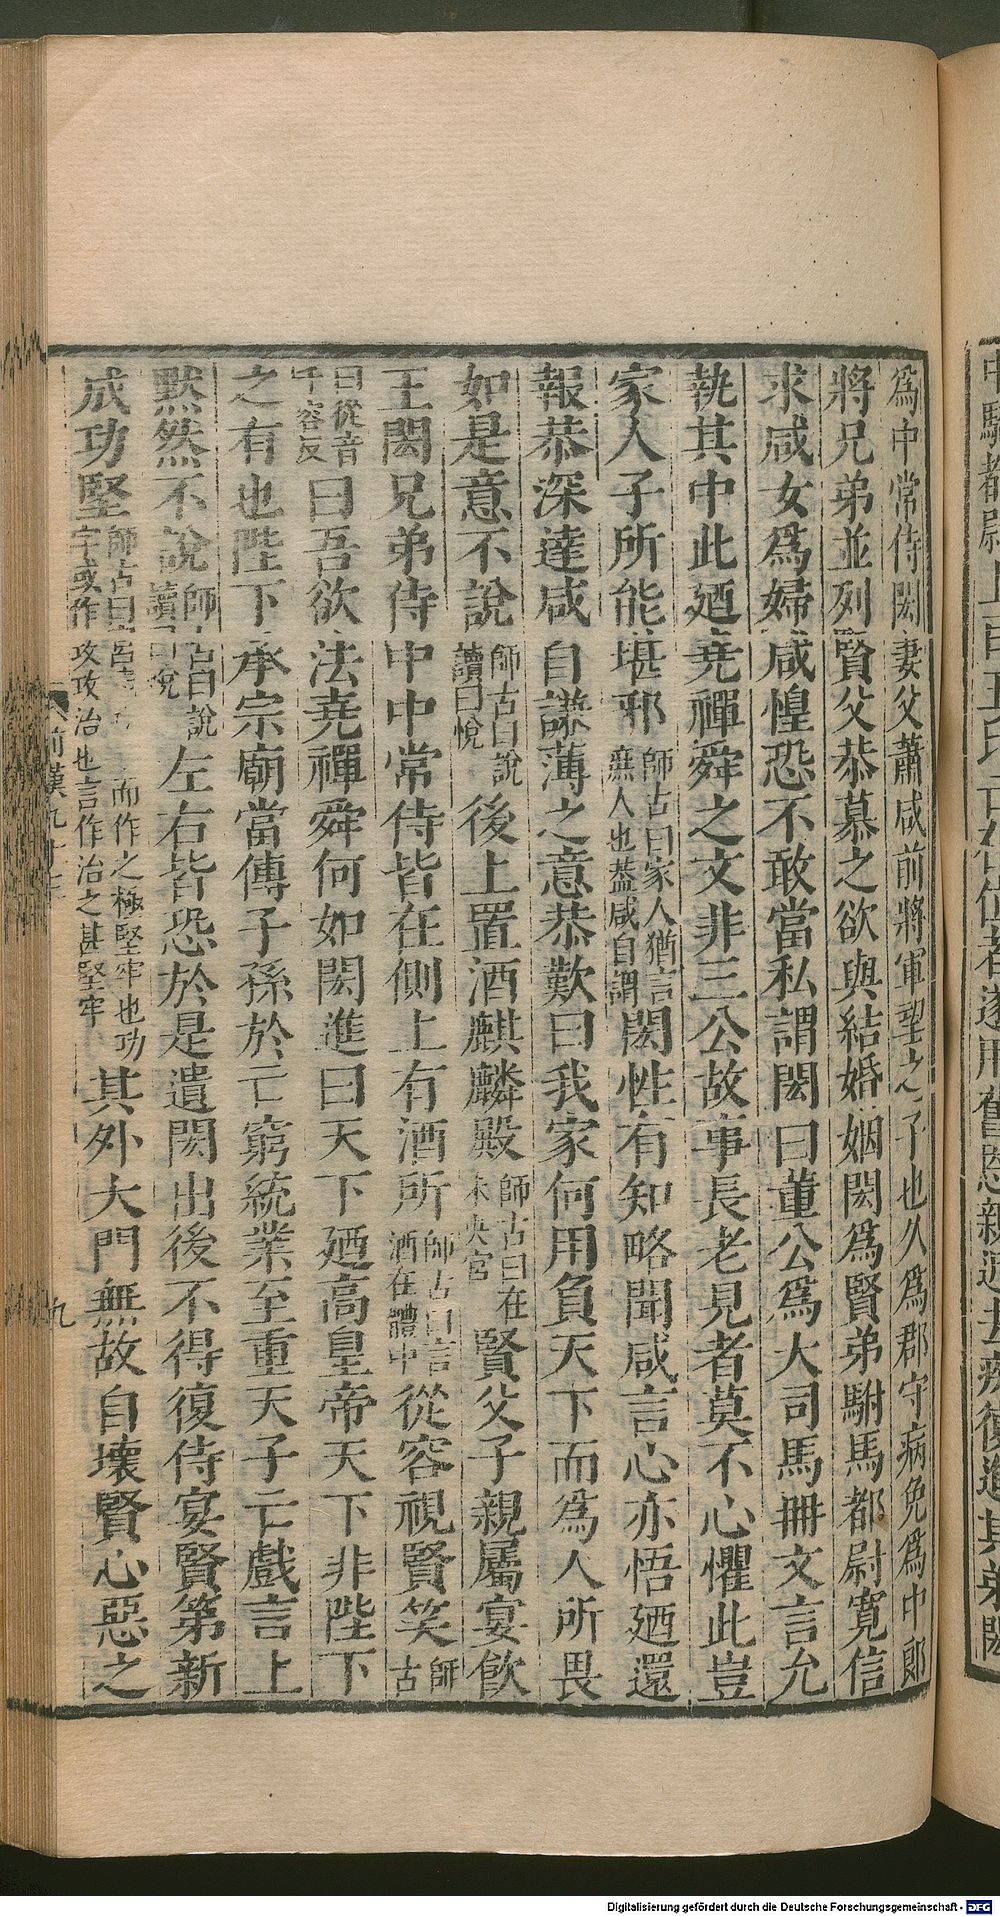 爲中常侍閎妻父蕭咸前將軍望之子也久爲郡守病免爲中郎
將兄弟並列賢父恭慕之欲與結婚姻閎爲賢弟駙馬都尉寬信
求咸女爲婦咸惶恐不敢當私謂閎曰董公爲大司馬冊文言允
執其中此廼堯禪舜之文非三公故事長老見者莫不心懼此豈
家人子所能堪邪師古曰家人猶言庶人也蓋咸自謂閎性有知略聞咸言心亦悟廼還
報恭深達咸自謙薄之意恭歎曰我家何用負天下而爲人所畏
如是意不說師古曰說讀曰悅後上置酒麒麟殿師古曰在未央宮賢父子親屬宴飲
王閎兄弟侍中中常侍皆在側上有酒所師古曰言酒在體中從容視賢笑師古
曰從音千容反曰吾欲法堯禪舜何如閎進曰天下廼高皇帝天下非陛下
之有也陛下承宗廟當傳子孫於亡窮統業至重天子亡戲言上
默然不說師古曰說讀曰悅左右皆恐於是遣閎出後不得復侍宴賢第新
成功堅師古曰而作之極堅牢也功字或作攻攻治也言作治之甚堅牢其外大門無故自壞賢心惡之
前漢九十三
九
Digitalisierung gefördert durch die Deutsche Forschungsgemeinschaft - DFG